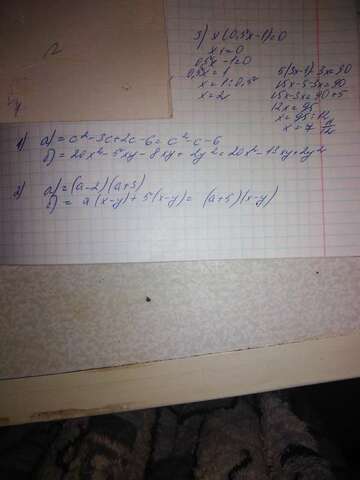 3) x(0,5x-1)=0
x=0
0,5x-1=0
0,5x=1
x=1:0,5
x=2
5(3x-1)-3x=90
15x-5-3x=90
15x-3x=90+5
12x=95
x=95:12
x=7 11/12
1) а)=c²-3c+2c-6=c²-c-6
б)=20x²-5xy-8xy+2y²=20x²-13xy+2y²
2) а)=(a-2)(a+3)
б)=a(x-y)+5(x-y)=(a+5)(x-y)